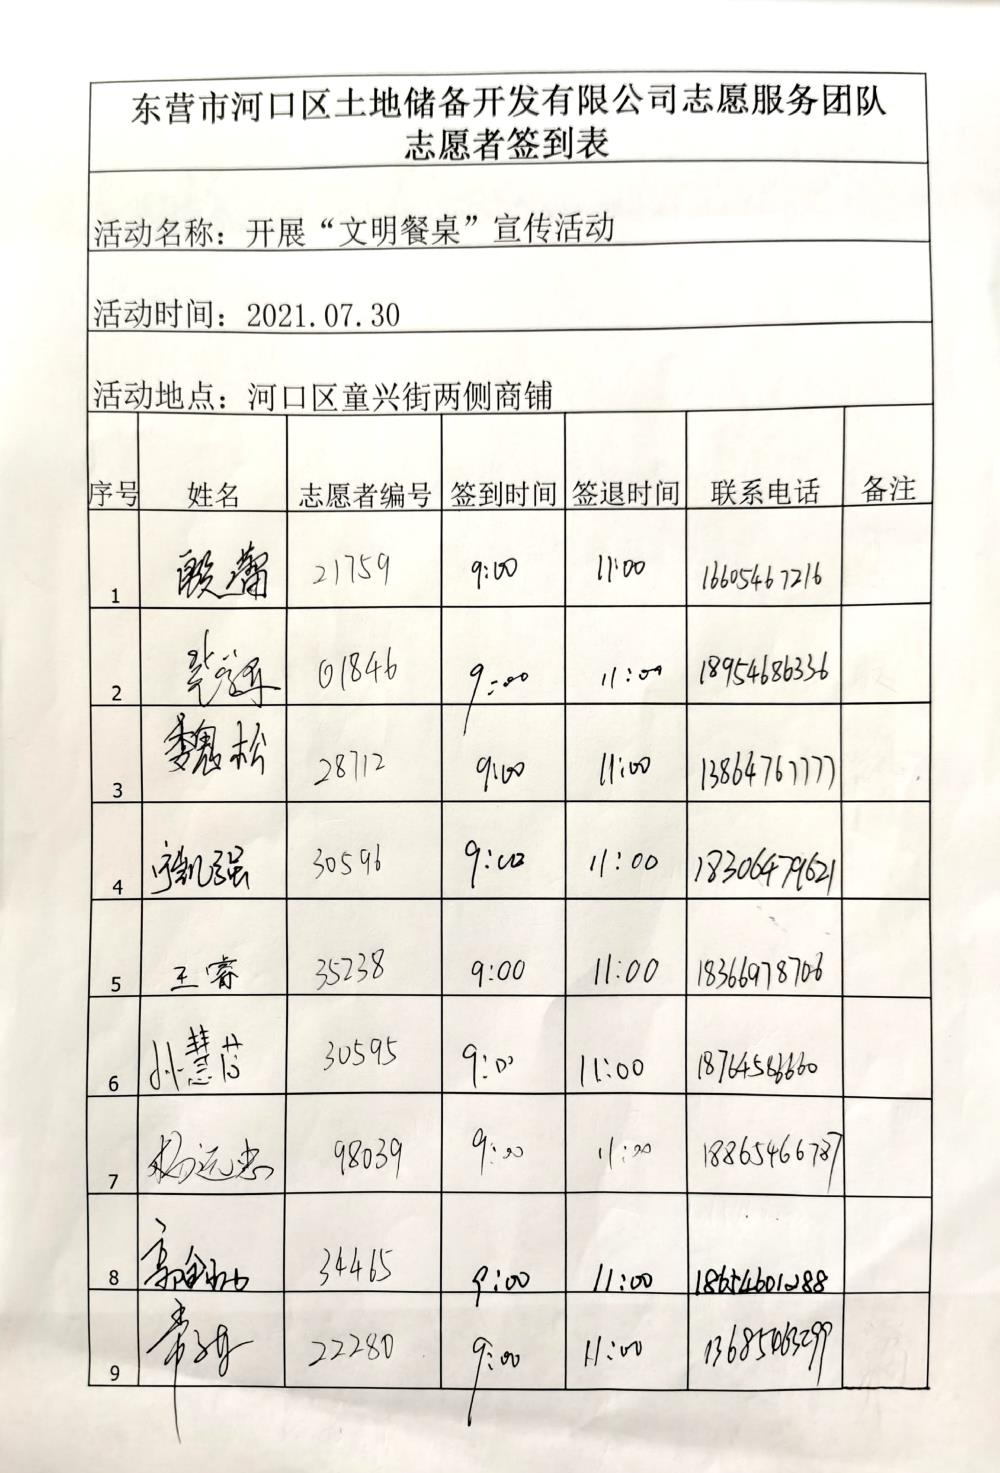 东营市河口区土地储备开发有限公司志愿服务团队
志愿者签到表
活动名称：开展“文明餐桌”宣传活动
活动时间：2021.07.30
活动地点：河口区童兴街两侧商铺
序号 姓名 志愿者编号 签到时间 签退时间 联系电话 备注
1 殷蕾 21759 9:00 11:00 16605467216
2 01846 9:00 11:00 18954686336
3 魏松 28712 9:00 11:00 13864767777
4 强 30596 9:00 11:00 18306479621
5 王睿 35238 9:00 11:00 18366978706
6 孙慧芳 30595 9:00 11:00
7 杨远忠 98039 9:00 11:00 18865466787
8 34465 9:00 11:00 18654601288
9 常 22280 9:00 11:00